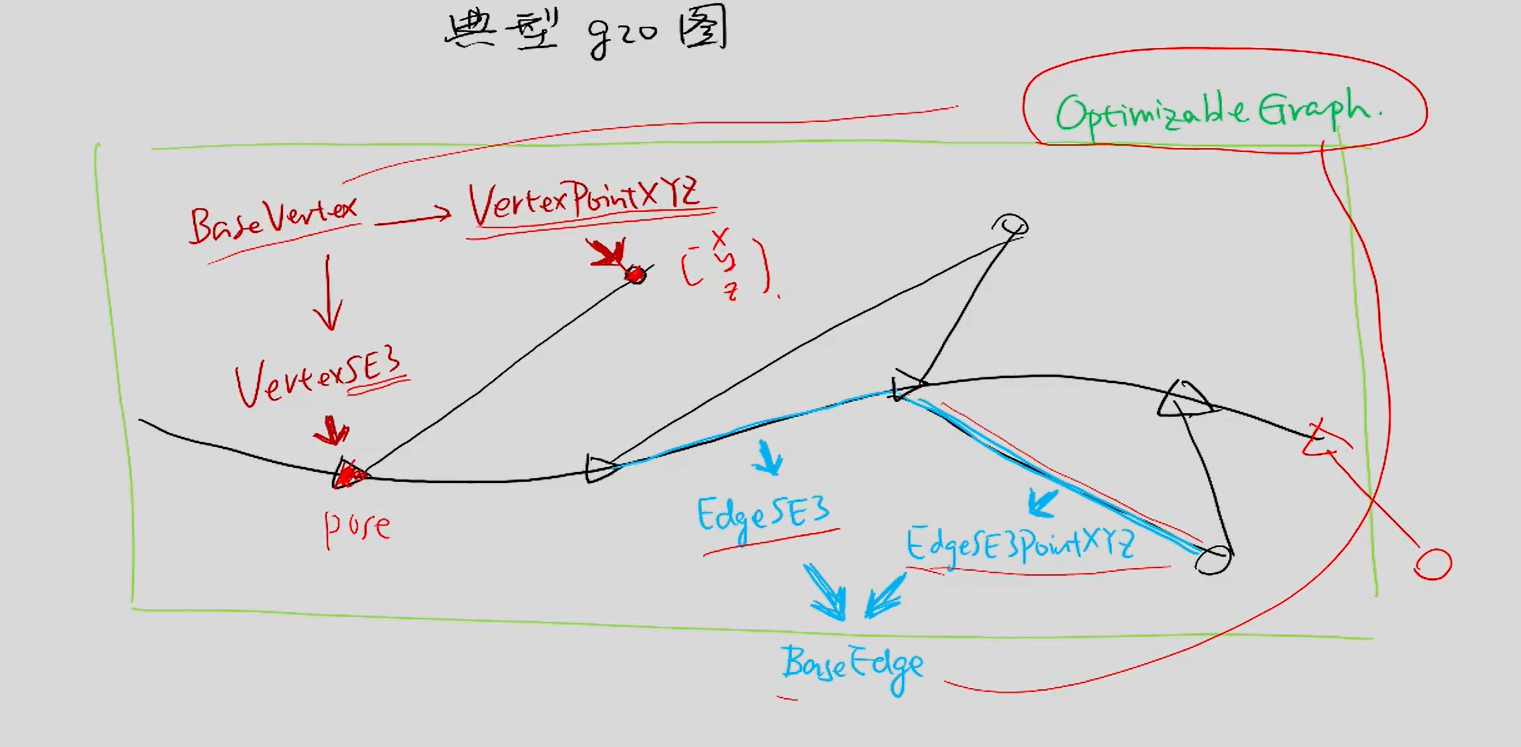 典型 g2o 图
OptimizableGraph.
BaseVertex
VertexPointXYZ
[x y z].
VertexSE3
pose
EdgeSE3
EdgeSE3PointXYZ
BaseEdge